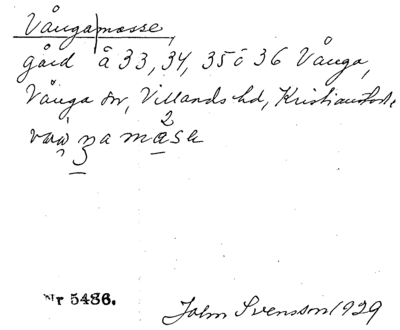 Vångamosse,
gård å 33, 34, 35 o 36 Vånga,
Vånga sn, Villands hd, Kristianst. l.
Nr 5486.
John Svensson 1929